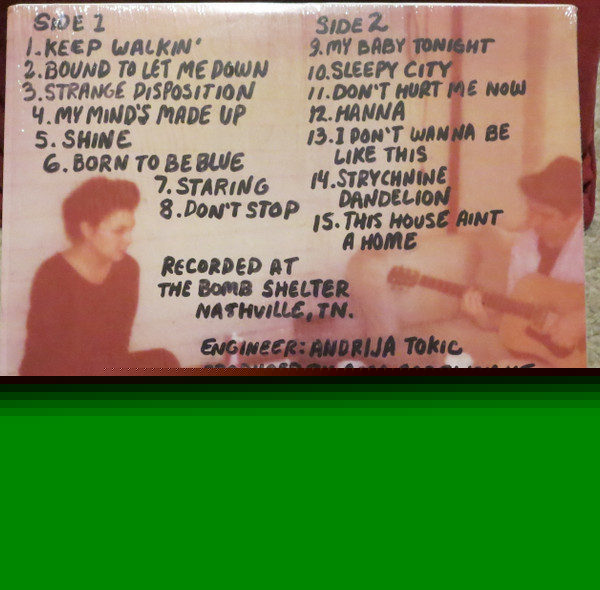 SIDE 1
1. KEEP WALKIN'
2. BOUND TO LET ME DOWN
3. STRANGE DISPOSITION
4. MY MIND'S MADE UP
5. SHINE
6. BORN TO BE BLUE
7. STARING
8. DON'T STOP
SIDE 2
9. MY BABY TONIGHT
10. SLEEPY CITY
11. DON'T HURT ME NOW
12. HANNA
13. I DON'T WANNA BE
LIKE THIS
14. STRYCHNINE
DANDELION
15. THIS HOUSE AINT
A HOME
RECORDED AT
THE BOMB SHELTER
NATHVILLE, TN.
ENGINEER: ANDRIJA TOKIC